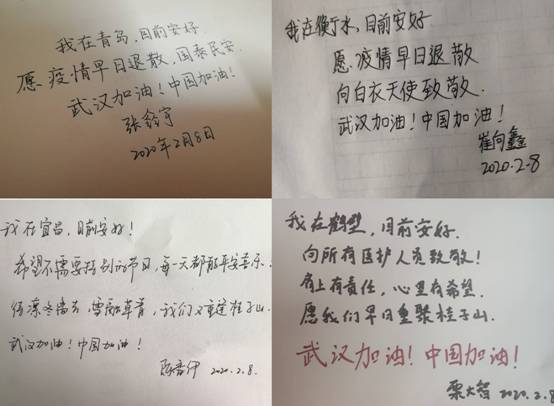 我在青岛,目前安好.
愿疫情早日退散,国泰民安.
武汉加油!中国加油!
张鑫宇
2020年2月8日
我在衡水,目前安好
愿疫情早日退散
向白衣天使致敬.
武汉加油!中国加油!
崔向鑫
2020.2.8
我在宜昌,目前安好!
希望不需要特别的节日,每一天都能平安喜乐.
待凛冬离去,雪融草青,我们又重逢桂子山.
武汉加油!中国加油!
2020.2.8.
我在鹤壁,目前安好.
向所有医护人员致敬!
肩上有责任,心里有希望.
愿我们早日重聚桂子山.
武汉加油!中国加油!
栗大智 2020.2.8